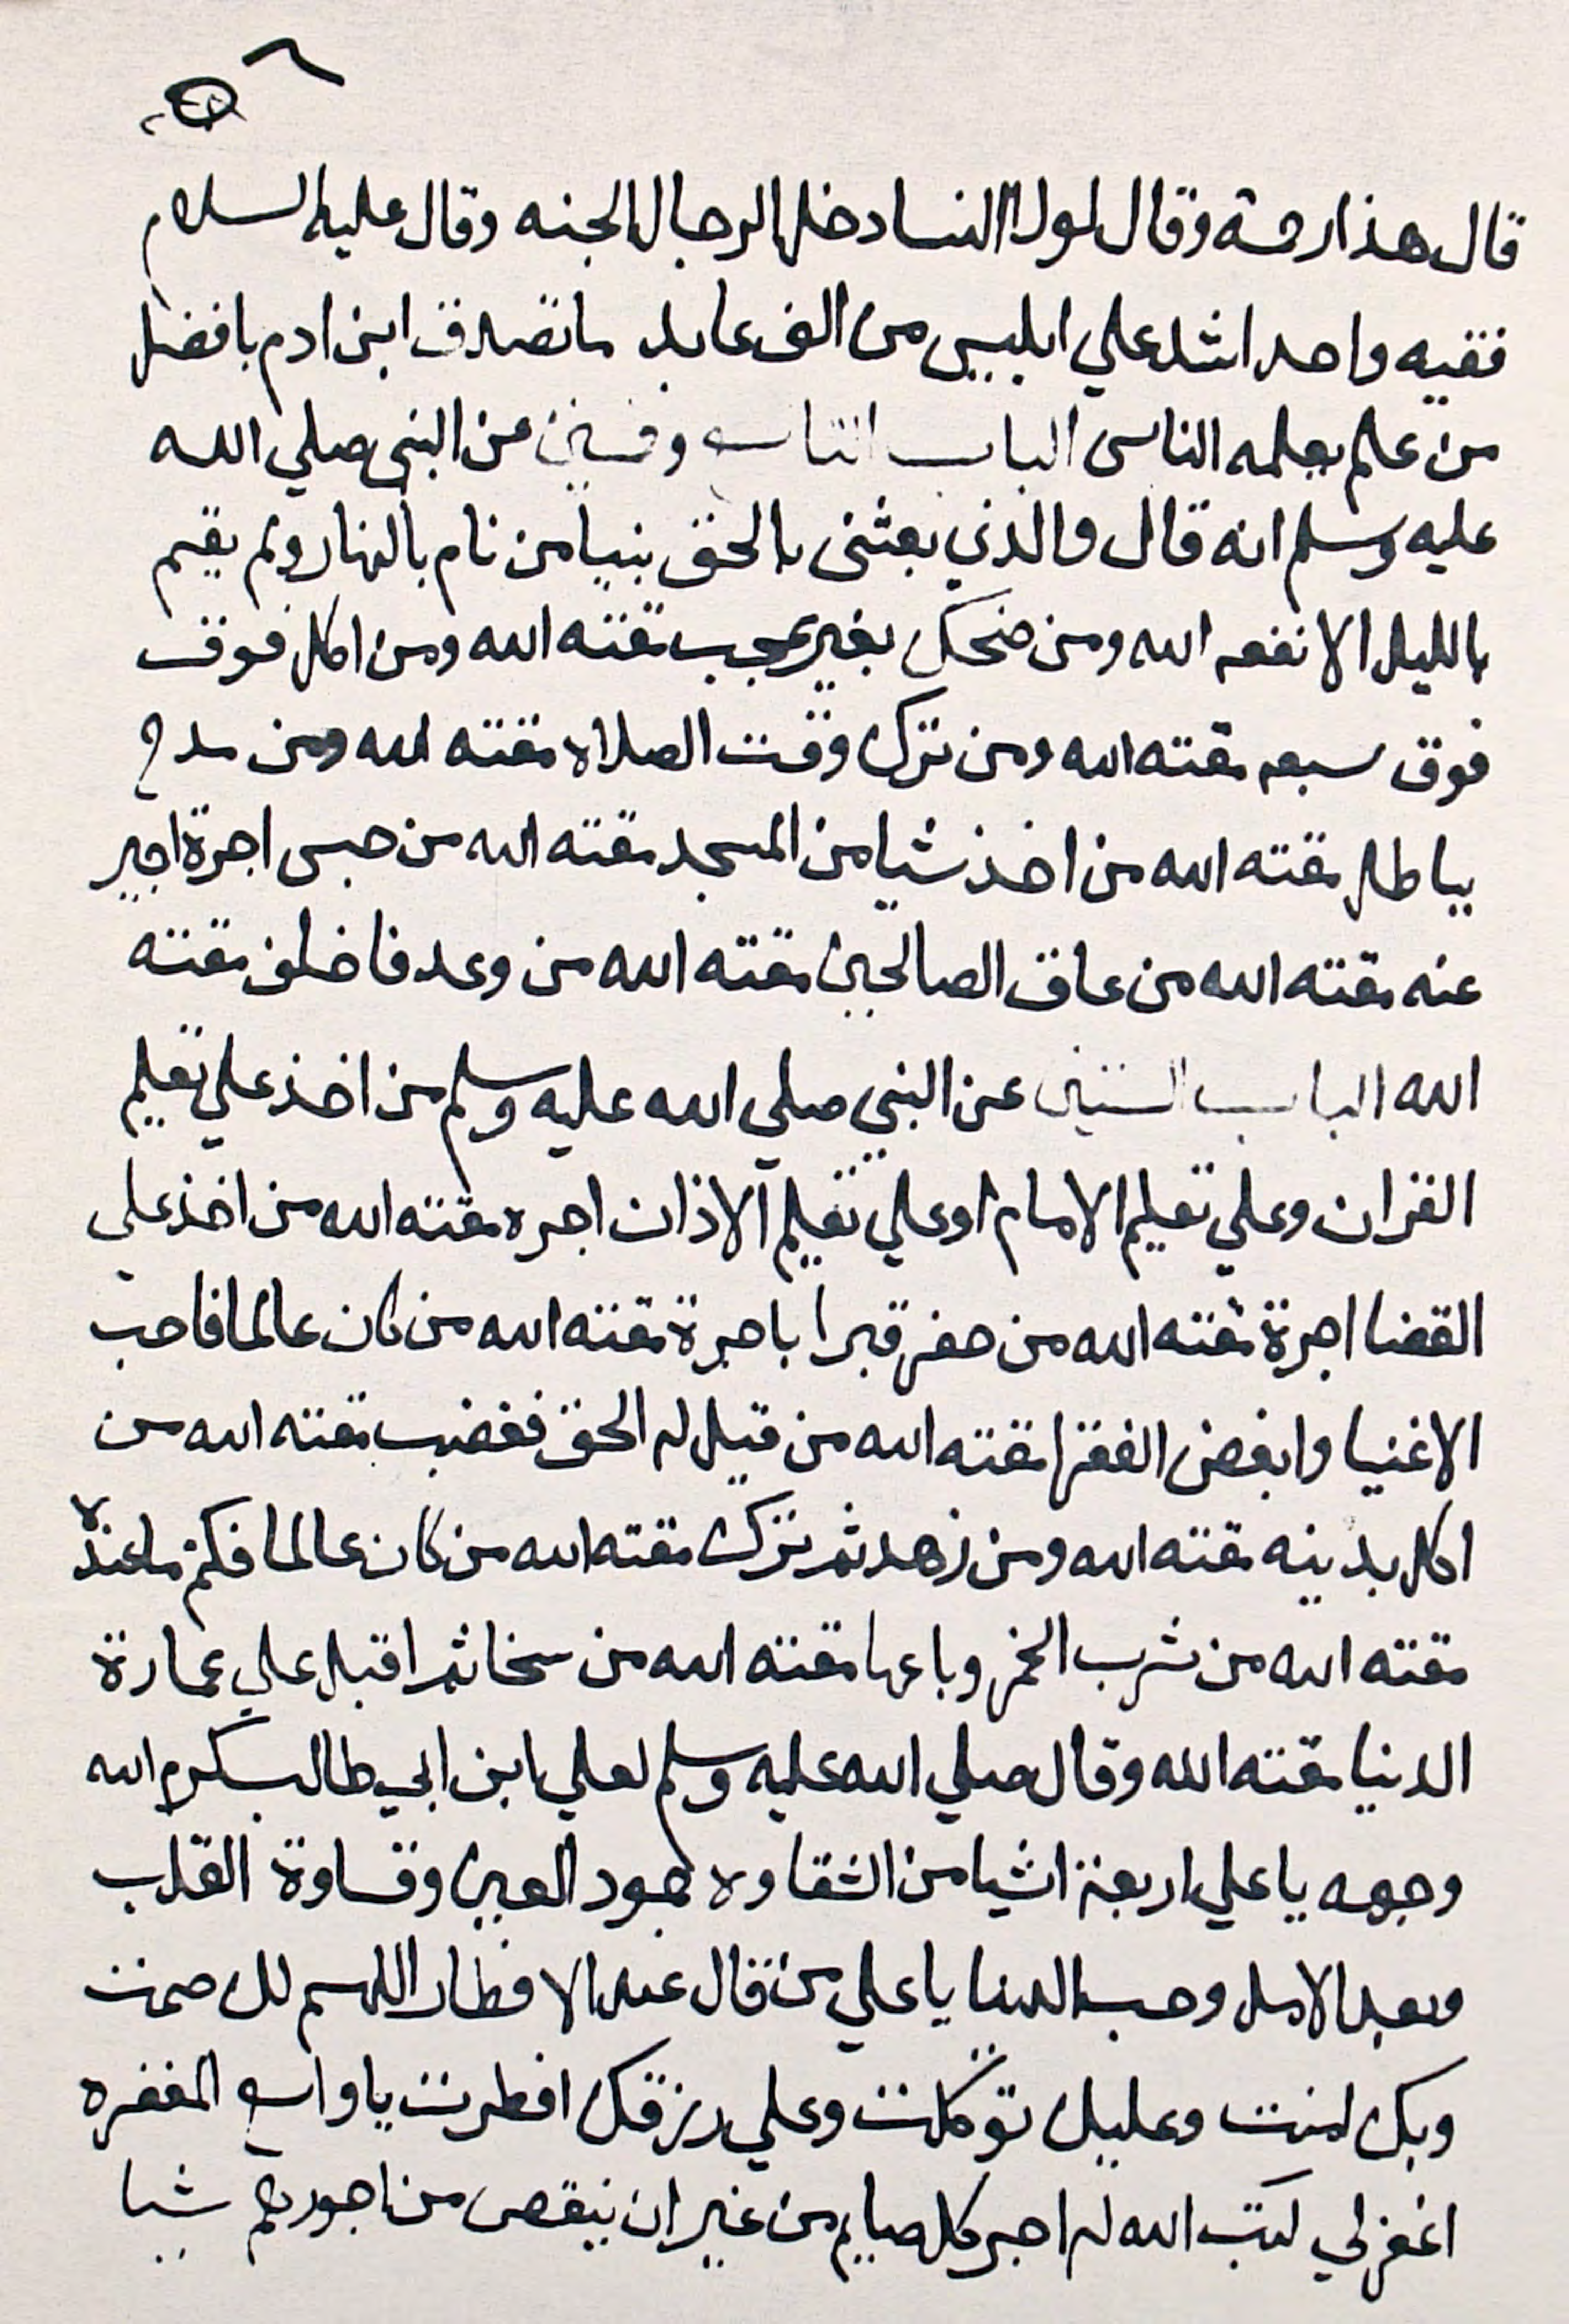 ٦
قال هذا رحمة وقال لولا النسا دخل الرجال الجنه وقال عليه السلام
فقيه واحد اشد علي ابليس من الف عابد ما تصدق ابن ادم بافضل
من علم يعلمه الناس الباب التاسع وخمسين عن النبي صلي الله
عليه وسلم انه قال والذي بعثني بالحق نبيا من نام بالنهار ولم يقيم
بالليل الا نفعه الله ومن ضحك بغير عجب مقته الله ومن اكل فوق
فوق سبعه مقته الله ومن ترك وقت الصلاه مقته الله ومن مدح
بباطل مقته الله من اخذ شيا من المسجد مقته الله من حبس اجرة اجير
عنه مقته الله من عاق الصالحين مقته الله من وعد فاخلف مقته
الله الباب الستين عن النبي صلي الله عليه وسلم من اخذ علي تعليم
القران وعلي تعليم الامام او علي تعليم الاذان اجره مقته الله من اخذ علي
القضا اجرة مقته الله من حفر قبرا باجرة مقته الله من كان عالما فاحب
الاغنيا وابغض الفقرا مقته الله من قيل له الحق فغضب مقته الله من
اكل بدينه مقته الله ومن زهد ثم ترك مقته الله من كان عالما فكتم ما عنده
مقته الله من شرب الخمر وباعها مقته الله من سخا ثم اقبل علي عمارة
الدنيا مقته الله وقال صلي الله عليه وسلم لعلي ابن ابي طالب كرم الله
وجهه يا علي اربعة اشيا من الشقاوه جمود العين وقساوة القلب
وبعد الامل وحب الدنيا يا علي من قال عند الافطار اللهم لك صمت
وبك امنت وعليك توكلت وعلي رزقك افطرت يا واسع المغفره
اغفر لي كتب الله له اجر كل صايم من غير ان ينقص من اجورهم شيا